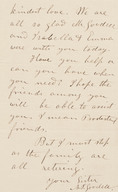 kindest love. We are
all so glad Mr Goodell
and Isabella & Emma
were with you today.
Have you help or
can you have when
you need? I hope the
friends among you
will be able to aid
you, I mean
friends.
But I must stop
as the family are
all retiring.
Your Sister
Goodell.